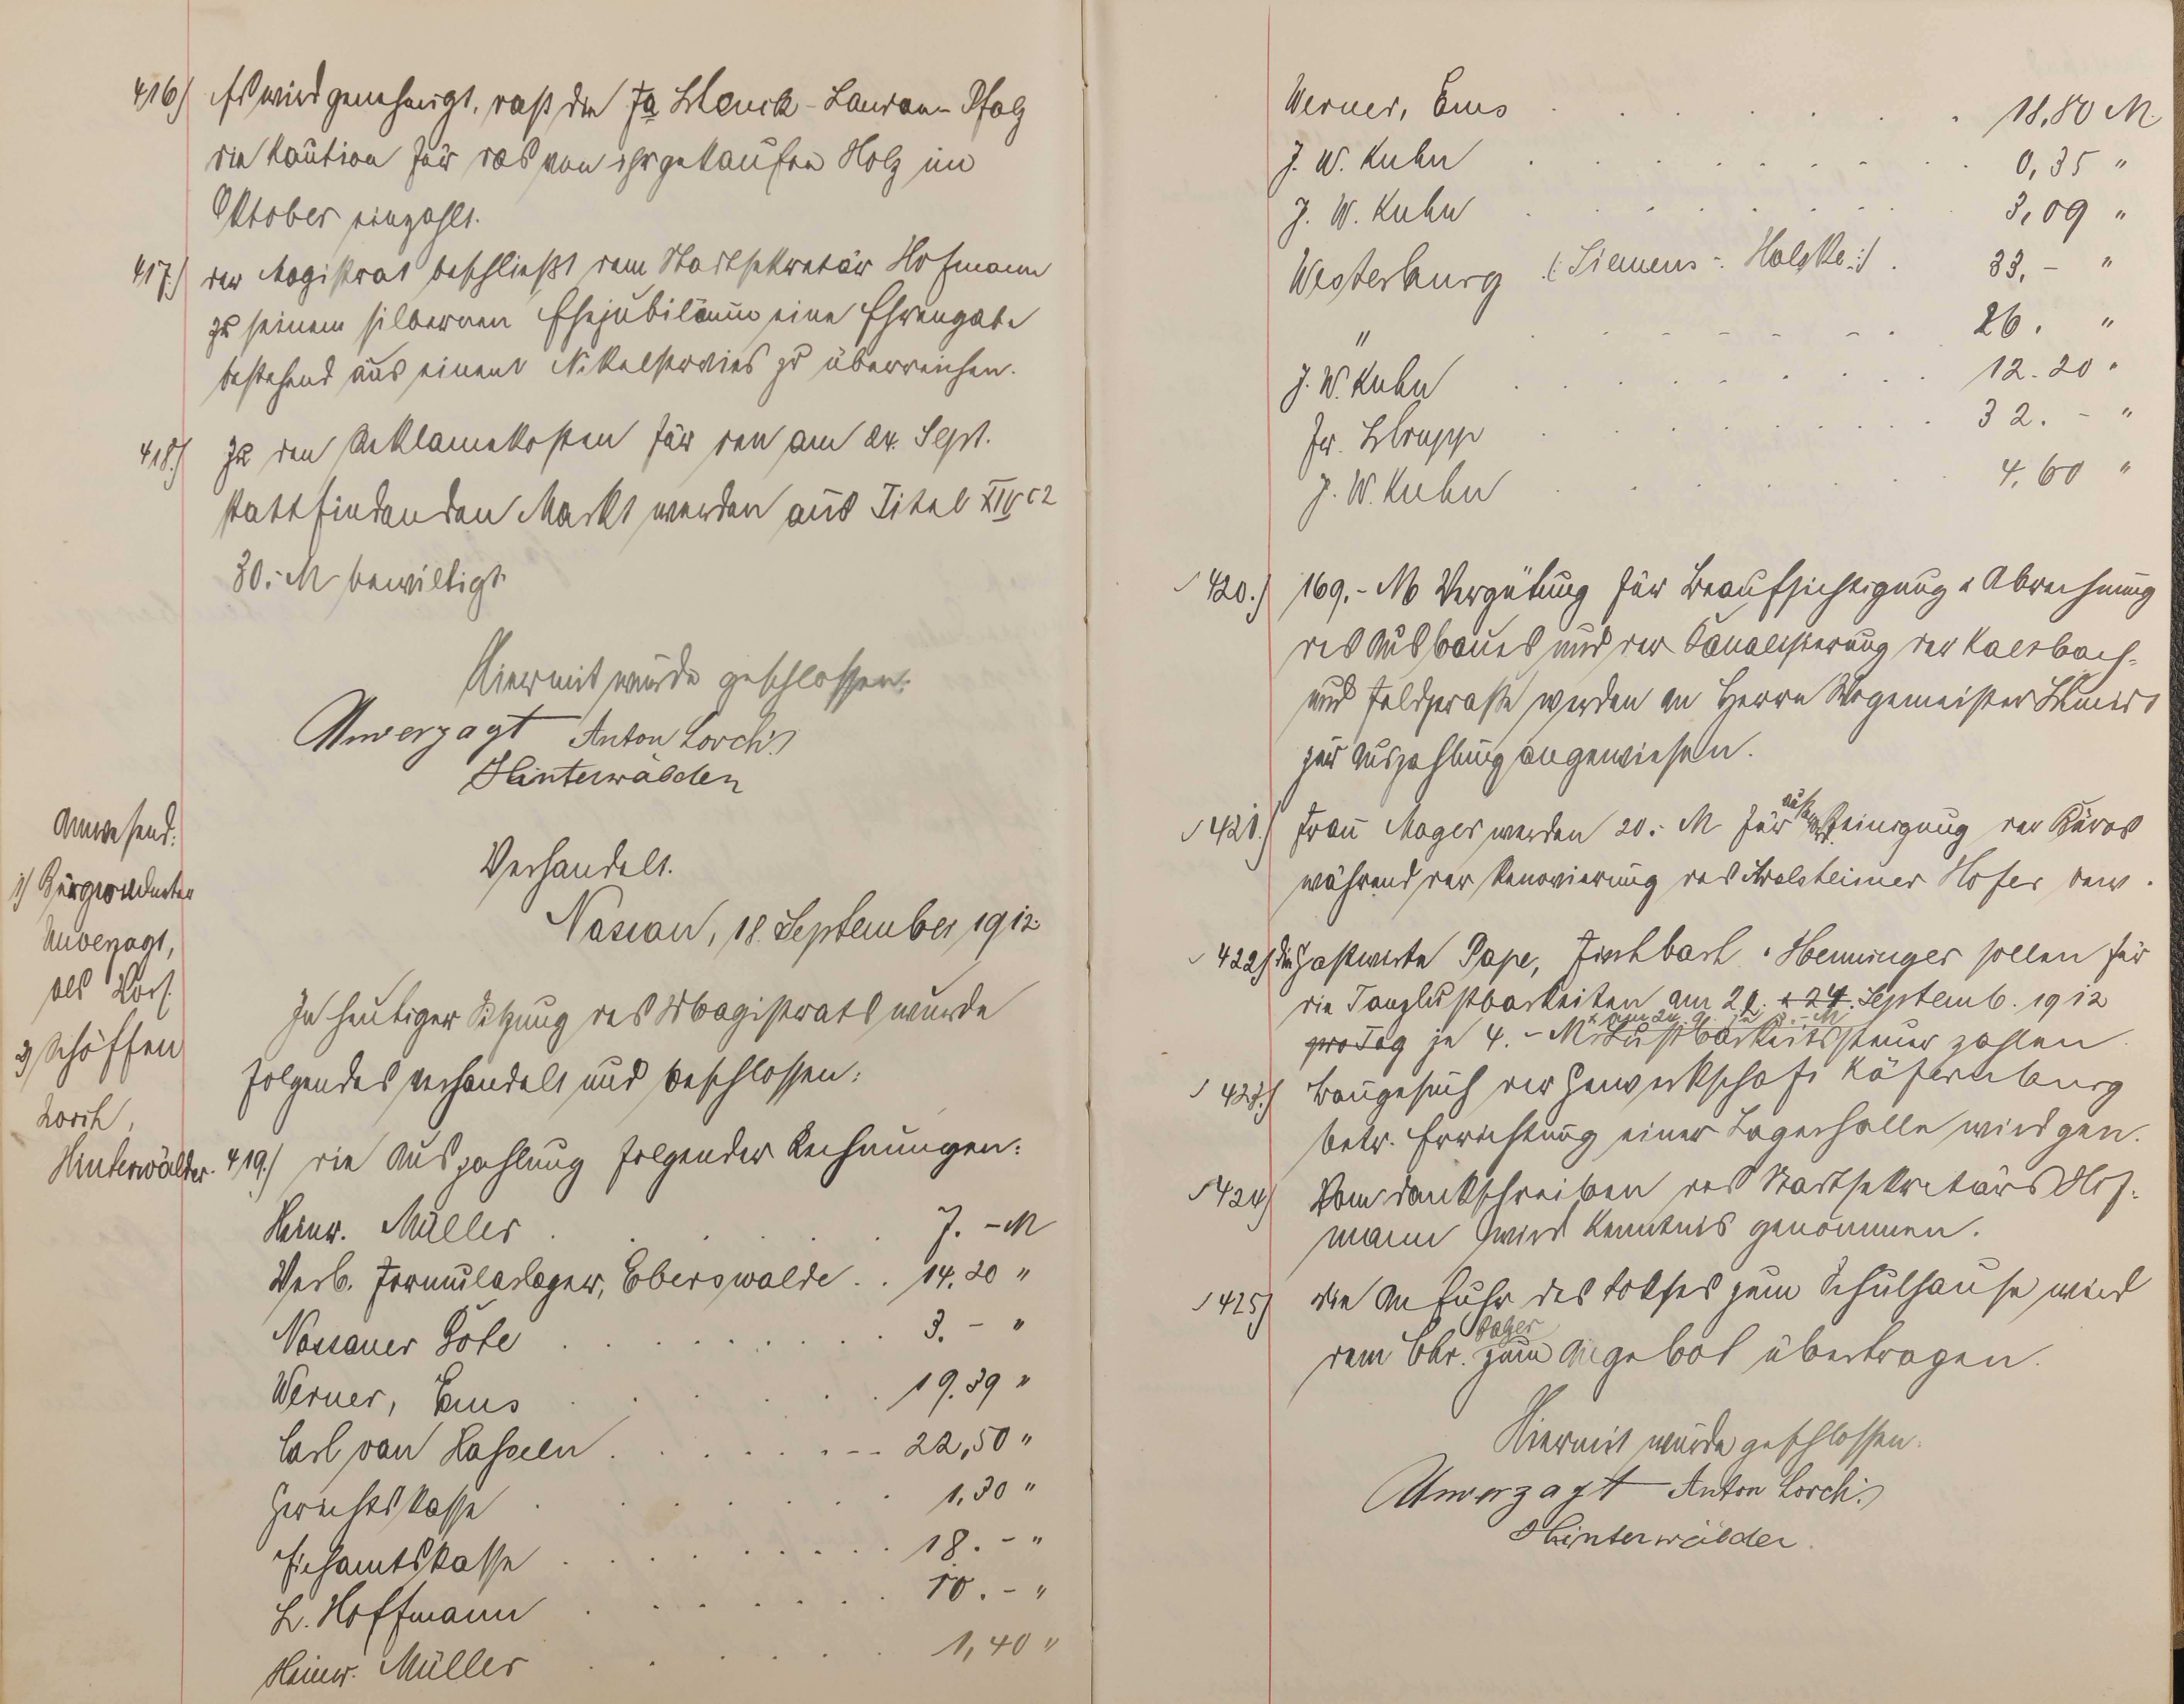 416.) Es wird genehmigt, daß die Fa Schenck-Landau-Pfalz
die Kaution für das von ihr gekaufte Holz im
Oktober einzahlt.
417.) der Magistrat beschließt dem Stadtsekretär Hofmann
zu seinem silbernen Ehejubiläum eine Ehrengabe
bestehend aus einem Nikelservies zu überreichen.
418.) Zu den Reklamekosten für den am 24. Sept.
stattfindenden Markt werden aus Titel XIV c2
30.- M bewilligt.
Hiermit wurde geschlossen.
Unverzagt Anton Lorch
Hinterwälder
Anwesend:
1) Bürgermeister
Unverzagt,
als Vors.
2) Schöffen
Lorch,
Hinterwälder.
Verhandelt.
Nassau, 18. September 1912.
In heutiger Sitzung des Magistrats wurde
folgendes verhandelt und beschlossen:
419.) die Auszahlung folgender Rechnungen:
Heinr. Müller 7.- M
Verb. Formularlager, Eberswalde 14.20 "
Nassauer Bote 3.- "
Werner, Ems 19.39 "
Carl van Hasseln 22,50 "
Gerichtskasse 1,30 "
Eichamtskasse 18.- "
L. Hoffmann 10.- "
Heinr. Müller 1,40 "
Werner, Ems 18,80 M.
J. W. Kuhn 0,35 "
J. W. Kuhn 3,09 "
Westerburg (: Siemens-Halske :) 33,- "
" 26. "
J. W. Kuhn 12.20 "
Fr. Schrupp 32.- "
J. W. Kuhn 4,60 "
420.) 169.- M Vergütung für Beaufsichtigung u Abrechnung
des Ausbaues und der Kanalisierung der Kaltbach-
und Feldstraße werden an Herrn Wegemeister
zur Auszahlung angewiesen.
421.) Frau Mager werden 20.- M für Reinigung der Büros
während der Renovierung des Adelsheimer Hofes bew.
422.) die Gastwirte Pape, Fischbach u Henninger sollen für
die Tanzlustbarkeiten am 2 & 24. Septemb. 1912
x am 24. 9. je 3.- M
pro Tag je 4.- M x Lustbarkeitssteuer zahlen.
423.) Baugesuch der Gewerkschaft Käfernburg
betr. Errichtung einer Lagerhalle wird gen.
424.) Vom Dankschreiben des Stadtsekretärs Hof-
mann wird Kenntnis genommen.
425.) die Anfuhr des Kokses zum Schulhause wird
dem Chr. zum Angebot übertragen.
Hiermit wurde geschlossen.
Unverzagt Anton Lorch
Hinterwälder.